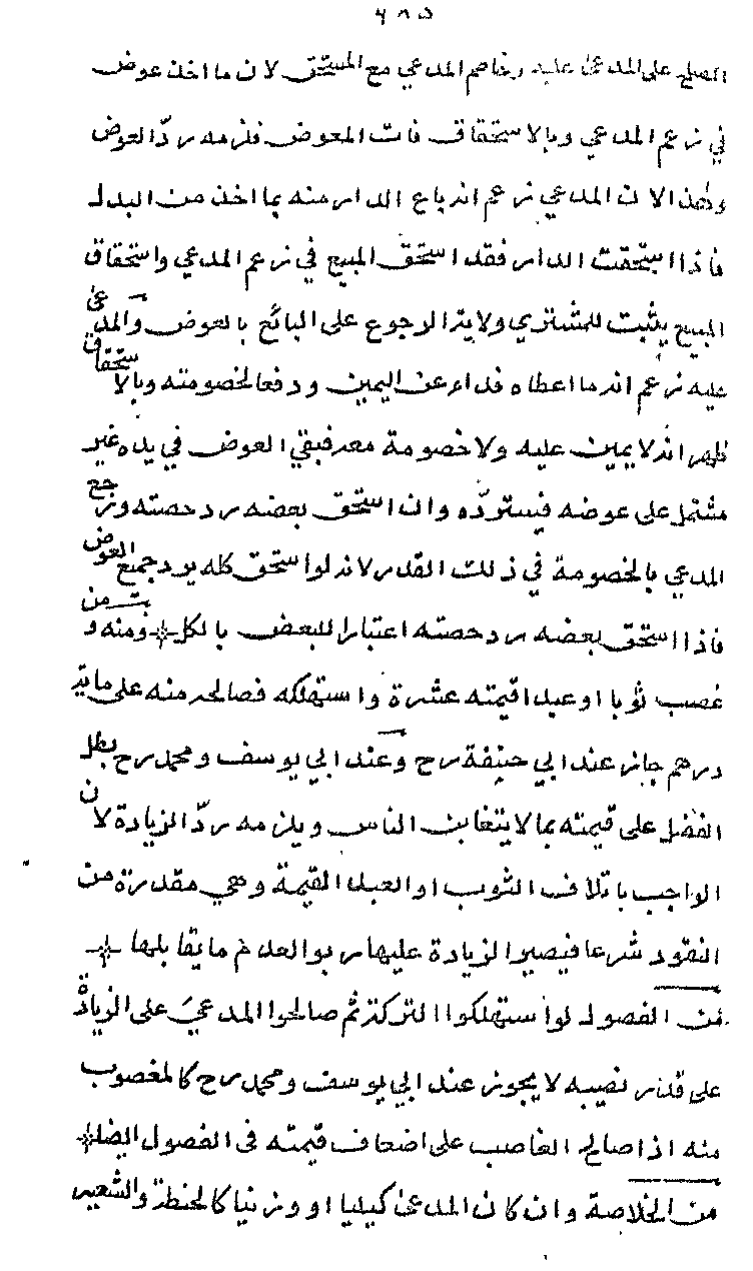 ٤٨٥
الصلح على المدعى عليه وخاصم المدعي مع المستحق لان ما اخذ عوض
في زعم المدعي وبالاستحقاق فات المعوض فلزمه ردّ العوض
وهذا لان المدعي زعم انه باع الدار منه بما اخذ من البدل
فاذا استحقت الدار فقد استحق المبيع في زعم المدعي واستحقاق
المبيع يثبت للمشتري ولاية الرجوع على البائع بالعوض والمدعى
عليه زعم انه ما اعطاه فداء عن اليمين ودفعا لخصومته وبالاستحقاق
ظهر انه لا يمين عليه ولا خصومة معه فبقي العوض في يده غير
مشتمل على عوضه فيستردّه وان استحق بعضه رد حصته ورجع
المدعي بالخصومة في ذلك القدر لانه لو استحق كله يرد جميع العوض
فاذا استحق بعضه رد حصته اعتبارا للبعض بالكل ومنه ومن
غصب ثوبا او عبدا قيمته عشرة واستهلكه فصالحه منه على ماية
درهم جاز عند ابي حنيفة رح وعند ابي يوسف ومحمد رح بطل
الفضل على قيمته بما لا يتغابن الناس ويلزمه ردّ الزيادة لان
الواجب باتلاف الثوب او العبد القيمة وهي مقدرة من
النقود شرعا فيصير الزيادة عليها ربوا لعدم ما يقابلها
من الفصول لو استهلكوا التركة ثم صالحوا المدعي على الزيادة
على قدر نصيبه لا يجوز عند ابي يوسف ومحمد رح كالمغصوب
منه اذا صالح الغاصب على اضعاف قيمته في الفصول ايضا
من الخلاصة وان كان المدعى كيليا او وزنيا كالحنطة والشعير